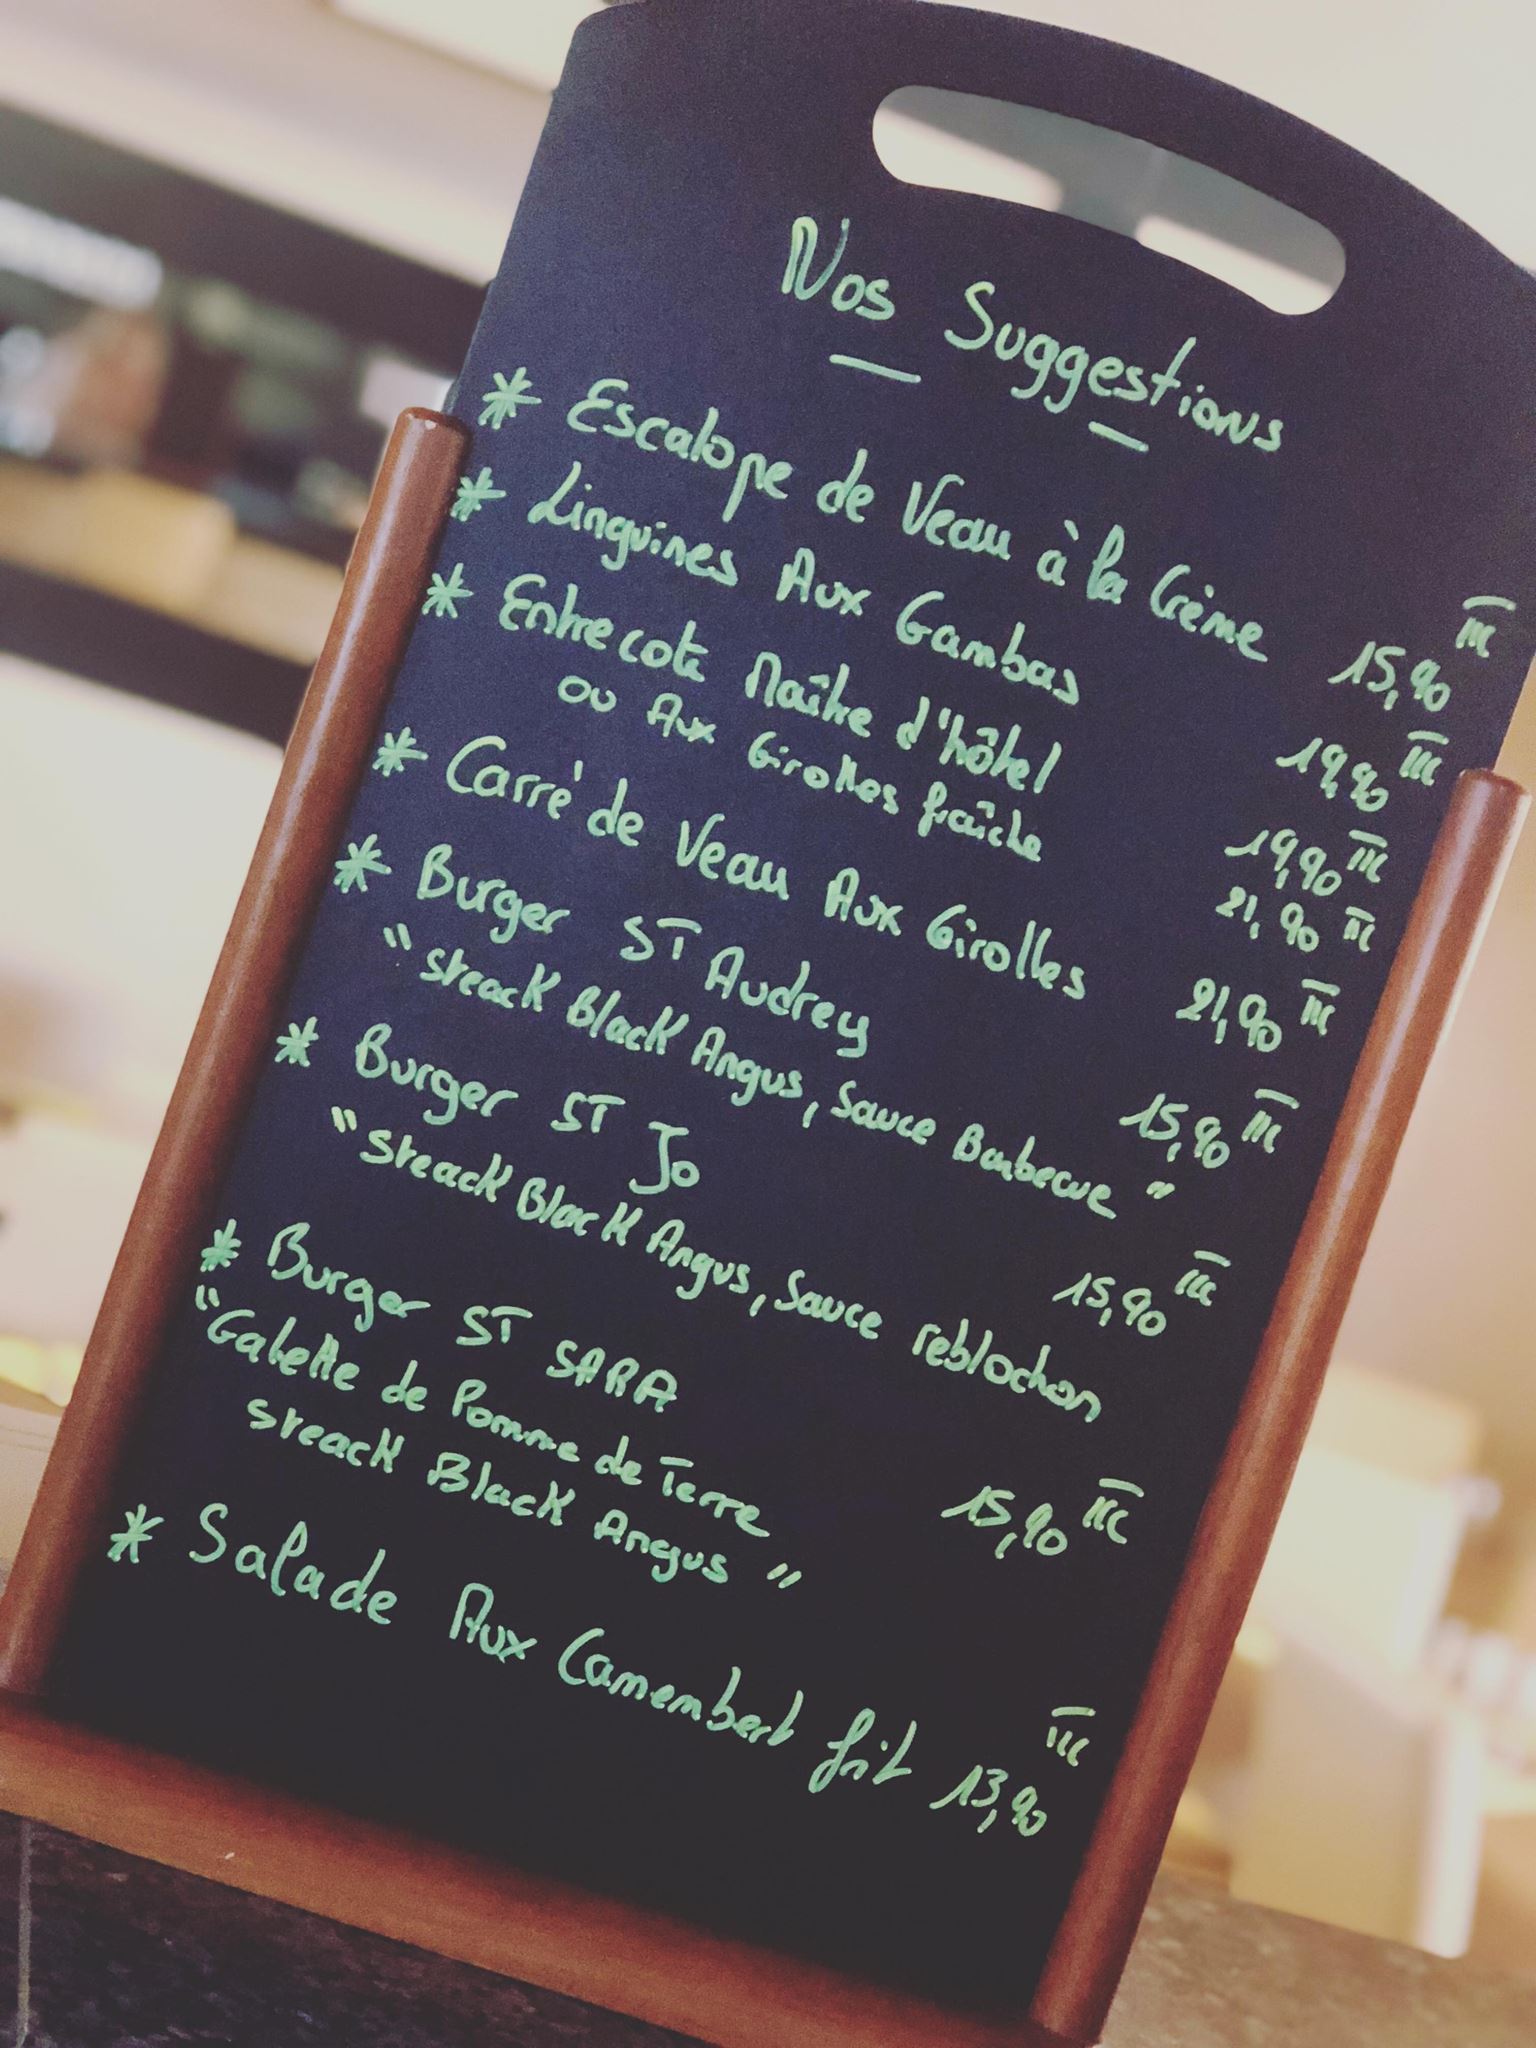 Nos Suggestions
* Escalope de Veau à la Crème 15,90 TTC
* Linguines Aux Gambas 19,90 TTC
* Entrecote Maître d'hôtel 19,90 TTC
ou Aux Girolles fraîche 21,90 TTC
* Carré de Veau Aux Girolles 21,90 TTC
* Burger ST Audrey 15,90 TTC
"Steack Black Angus, Sauce Barbecue"
* Burger ST Jo 15,90 TTC
"Steack Black Angus, Sauce reblochon
* Burger ST SARA 15,90 TTC
"Galette de Pomme de Terre
Steack Black Angus"
* Salade Aux Camembert frit 13,90 TTC